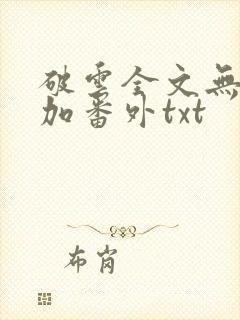 破雲全文無
加番外txt
布肖